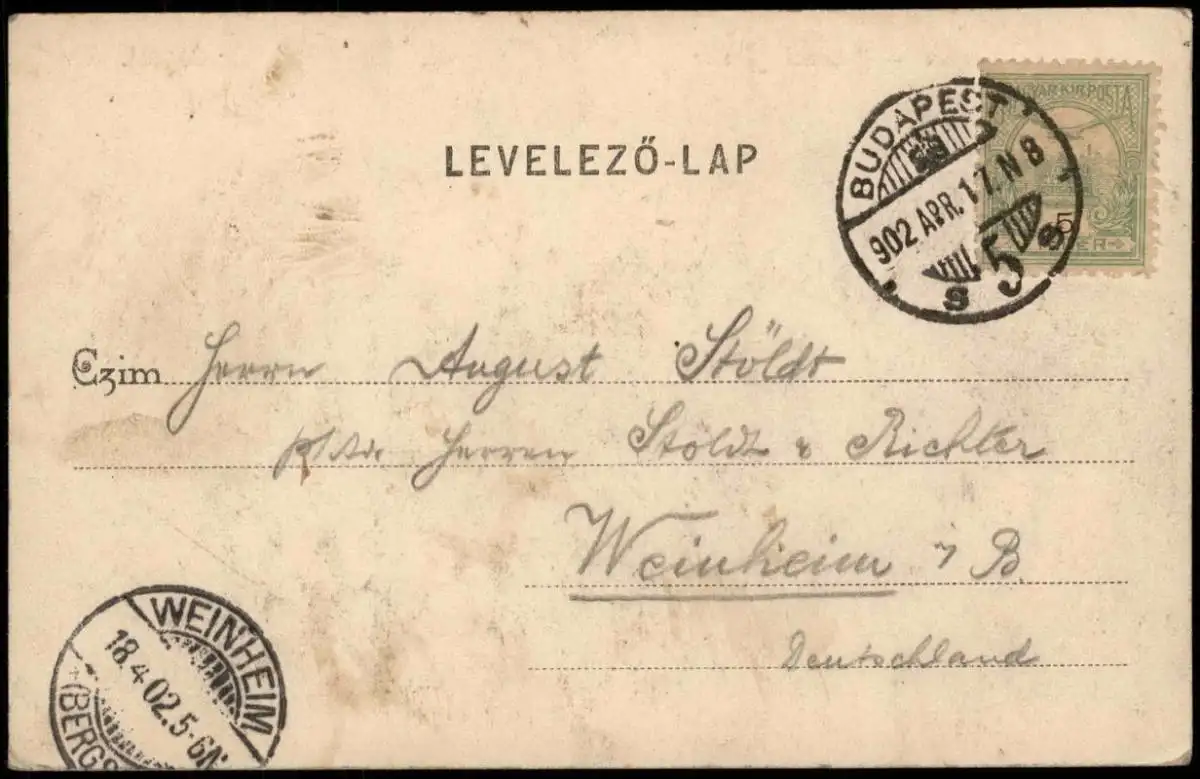 LEVELEZŐ-LAP
MAGYAR KIR. POSTA
5
BUDAPEST
902 APR. 17. N 8
VIII. 5
S
Czim Herrn August Stöldt
Herren Stöldt & Richter
Weinheim / B
Deutschland
WEINHEIM
18.4.02.5-6N.
(BERGS